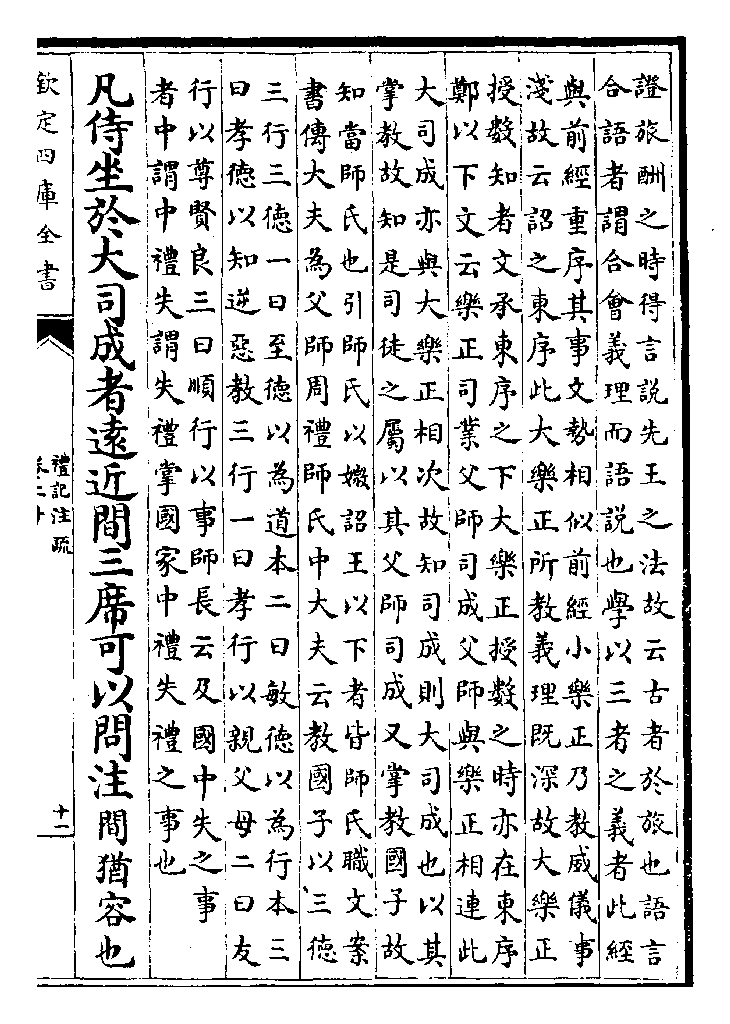 證旅酬之時得言說先王之法故云古者於旅也語言
合語者謂合會義理而語說也學以三者之義者此經
與前經重序其事文勢相似前經小樂正乃教威儀事
淺故云詔之東序此大樂正所教義理既深故大樂正
授數知者文承東序之下大樂正授數之時亦在東序
鄭以下文云樂正司業父師司成父師與樂正相連此
大司成亦與大樂正相次故知司成則大司成也以其
掌教故知是司徒之屬以其父師司成又掌教國子故
知當師氏也引師氏以媺詔王以下者皆師氏職文案
書傳大夫為父師周禮師氏中大夫云教國子以三德
三行三德一曰至德以為道本二曰敏德以為行本三
曰孝德以知逆惡教三行一曰孝行以親父母二曰友
行以尊賢良三曰順行以事師長云及國中失之事
者中謂中禮失謂失禮掌國家中禮失禮之事也
凡侍坐於大司成者遠近間三席可以問注間猶容也
欽定四庫全書
禮記注疏
卷二十
十一